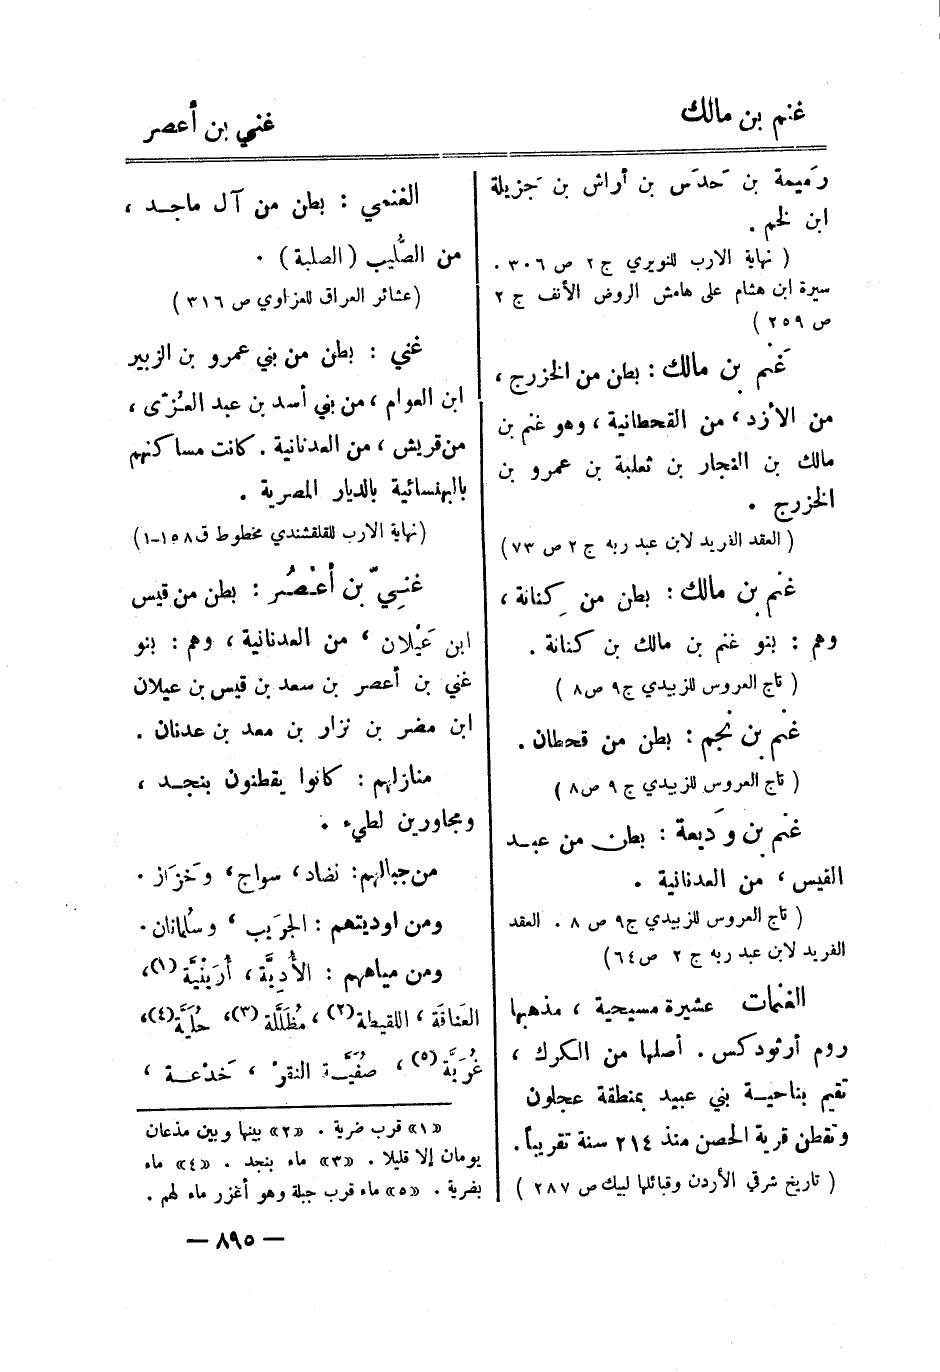 غنم بن مالك
غني بن أعصر
رَميمة بن حَدَس بن أراش بن جَزيلة
ابن لخم .
( نهاية الارب للنويري ج ٢ ص ٣٠٦ .
سيرة ابن هشام على هامش الروض الأنف ج ٢
ص ٢٥٩ )
غَنْم بن مالك : بطن من الخزرج ،
من الأزد ، من القحطانية ، وهو غنم بن
مالك بن النجار بن ثعلبة بن عمرو بن
الخزرج .
( العقد الفريد لابن عبد ربه ج ٢ ص ٧٣ )
غنْم بن مالك : بطن من كِنانة ،
وهم : بنو غنم بن مالك بن كنانة .
( تاج العروس للزبيدي ج ٩ ص ٨ )
غنْم بن نجم : بطن من قحطان .
( تاج العروس للزبيدي ج ٩ ص ٨ )
غنْم بن وَديعة : بطن من عبد
القيس ، من العدنانية .
( تاج العروس للزبيدي ج ٩ ص ٨ . العقد
الفريد لابن عبد ربه ج ٢ ص ٦٤ )
الغنْمات عشيرة مسيحية ، مذهبها
روم أرثودكس . أصلها من الكرك ،
تقيم بناحية بني عبيد بمنطقة عجلون
وتقطن قرية الحصن منذ ٢١٤ سنة تقريباً .
( تاريخ شرقي الأردن وقبائلها لبيك ص ٢٨٧ )
الغنمي : بطن من آل ماجد ،
من الصُّليب ( الصلبة ) .
( عشائر العراق للعزاوي ص ٣١٦ )
غني : بطن من بني عمرو بن الزبير
ابن العوام ، من بني أسد بن عبد العُزّى ،
من قريش ، من العدنانية . كانت مساكنهم
بالبهنسائية بالديار المصرية .
( نهاية الارب للقلقشندي مخطوط ق ١٥٨-١ )
غنِيّ بن أعْصُر : بطن من قيس
ابن عَيْلان ، من العدنانية ، وهم : بنو
غني بن أعصر بن سعد بن قيس بن عيلان
ابن مضر بن نزار بن معد بن عدنان .
منازلهم : كانوا يقطنون بنجد ،
ومجاورين لطيء .
من جبالهم : نضاد ، سواج ، وخَزاز .
ومن اوديتهم : الجريب ، وسُلمانان .
ومن مياههم : الأُدِيَّة ، أُرَيْنِيَّة (١) ،
العَناقة ، اللقيطة (٢) ، مُظَلَّلة (٣) ، حُلَيَّة (٤) ،
غُرَيَّة (٥) ، صُفَيَّة النقر ، خَدْعة ،
«١» قرب ضرية . «٢» بينها وبين مذعان
يومان إلا قليلا . «٣» ماء بنجد . «٤» ماء
بضرية . «٥» ماء قرب جبلة وهو أغزر ماء لهم .
— ٨٩٥ —